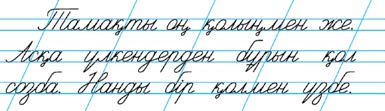 Тамақты оң қолыңмен же.
Асқа үлкендерден бұрын қол
созба. Нанды бір қолмен үзбе.